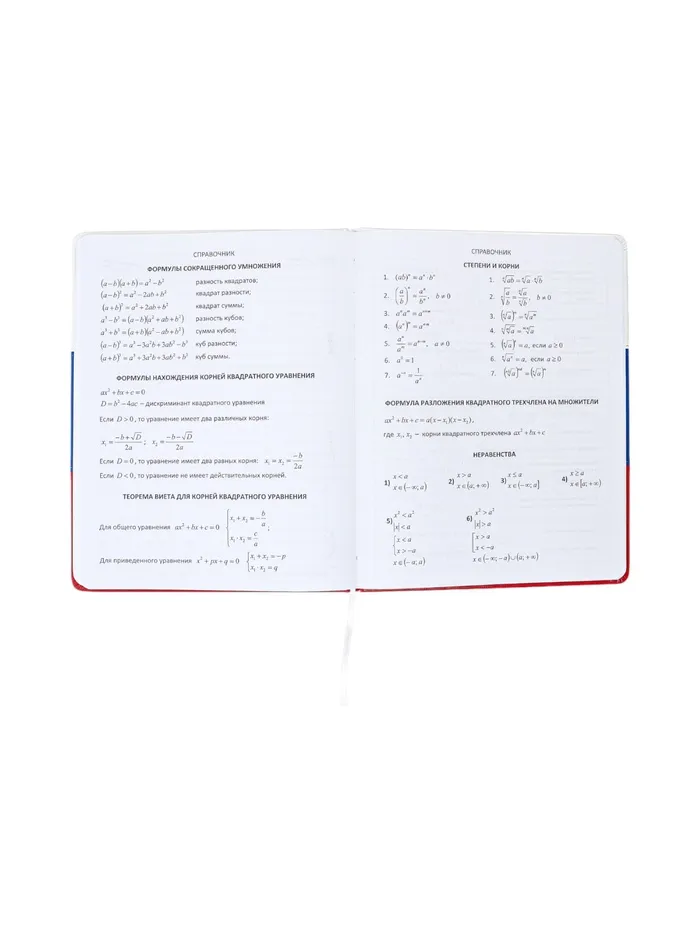 СПРАВОЧНИК
ФОРМУЛЫ СОКРАЩЕННОГО УМНОЖЕНИЯ
(a−b)(a+b)=a²−b² разность квадратов;
(a−b)²=a²−2ab+b² квадрат разности;
(a+b)²=a²+2ab+b² квадрат суммы;
a³−b³=(a−b)(a²+ab+b²) разность кубов;
a³+b³=(a+b)(a²−ab+b²) сумма кубов;
(a−b)³=a³−3a²b+3ab²−b³ куб разности;
(a+b)³=a³+3a²b+3ab²+b³ куб суммы.
ФОРМУЛЫ НАХОЖДЕНИЯ КОРНЕЙ КВАДРАТНОГО УРАВНЕНИЯ
ax²+bx+c=0
D=b²−4ac − дискриминант квадратного уравнения
Если D>0, то уравнение имеет два различных корня:
x₁=(−b+√D)/2a; x₂=(−b−√D)/2a
Если D=0, то уравнение имеет два равных корня: x₁=x₂=−b/2a
Если D<0, то уравнение не имеет действительных корней.
ТЕОРЕМА ВИЕТА ДЛЯ КОРНЕЙ КВАДРАТНОГО УРАВНЕНИЯ
Для общего уравнения ax²+bx+c=0 {x₁+x₂=−b/a
x₁·x₂=c/a ;
Для приведенного уравнения x²+px+q=0 {x₁+x₂=−p
x₁·x₂=q
СПРАВОЧНИК
СТЕПЕНИ И КОРНИ
1. (ab)ⁿ=aⁿ·bⁿ
2. (a/b)ⁿ=aⁿ/bⁿ, b≠0
3. aⁿaᵐ=aⁿ⁺ᵐ
4. (aⁿ)ᵐ=aⁿᵐ
5. aⁿ/aᵐ=aⁿ⁻ᵐ, a≠0
6. a⁰=1
7. a⁻ⁿ=1/aⁿ
1. ⁿ√ab=ⁿ√a·ⁿ√b
2. ⁿ√(a/b)=ⁿ√a/ⁿ√b, b≠0
3. (ⁿ√a)ᵐ=ⁿ√aᵐ
4. ᵐ√ⁿ√a=ᵐⁿ√a
5. (ⁿ√a)ⁿ=a, если a≥0
6. ⁿ√aⁿ=a, если a≥0
ФОРМУЛА РАЗЛОЖЕНИЯ КВАДРАТНОГО ТРЕХЧЛЕНА НА МНОЖИТЕЛИ
ax²+bx+c=a(x−x₁)(x−x₂),
где x₁, x₂ − корни квадратного трехчлена ax²+bx+c
НЕРАВЕНСТВА
1) x<a
x∈(−∞;a)
2) x>a
x∈(a;+∞)
3) x≤a
x∈(−∞;a]
4) x≥a
x∈[a;+∞)
5) x²<a²
|x|<a
{x<a
x>−a
x∈(−a;a)
6) x²>a²
|x|≥a
[x>a
x<−a
x∈(−∞;−a)∪(a;+∞)